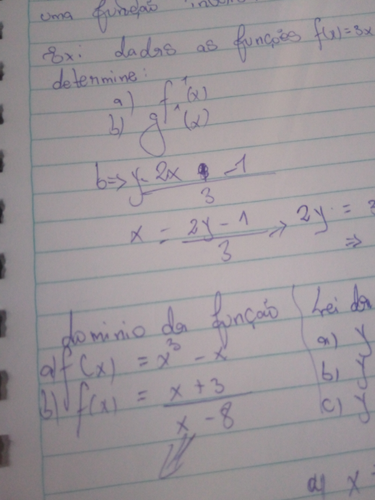 uma função
Ex: dadas as funções f(x)=3x
determine:
a) f⁻¹(x)
b) g⁻¹(x)
b=> y = 2x - 1 / 3
x = 2y - 1 / 3 -> 2y =
=>
dominio da função
a) f(x) = x³ - x
b) f(x) = x + 3 / x - 8
Lei da
a) y
b) y
c) y
a) x